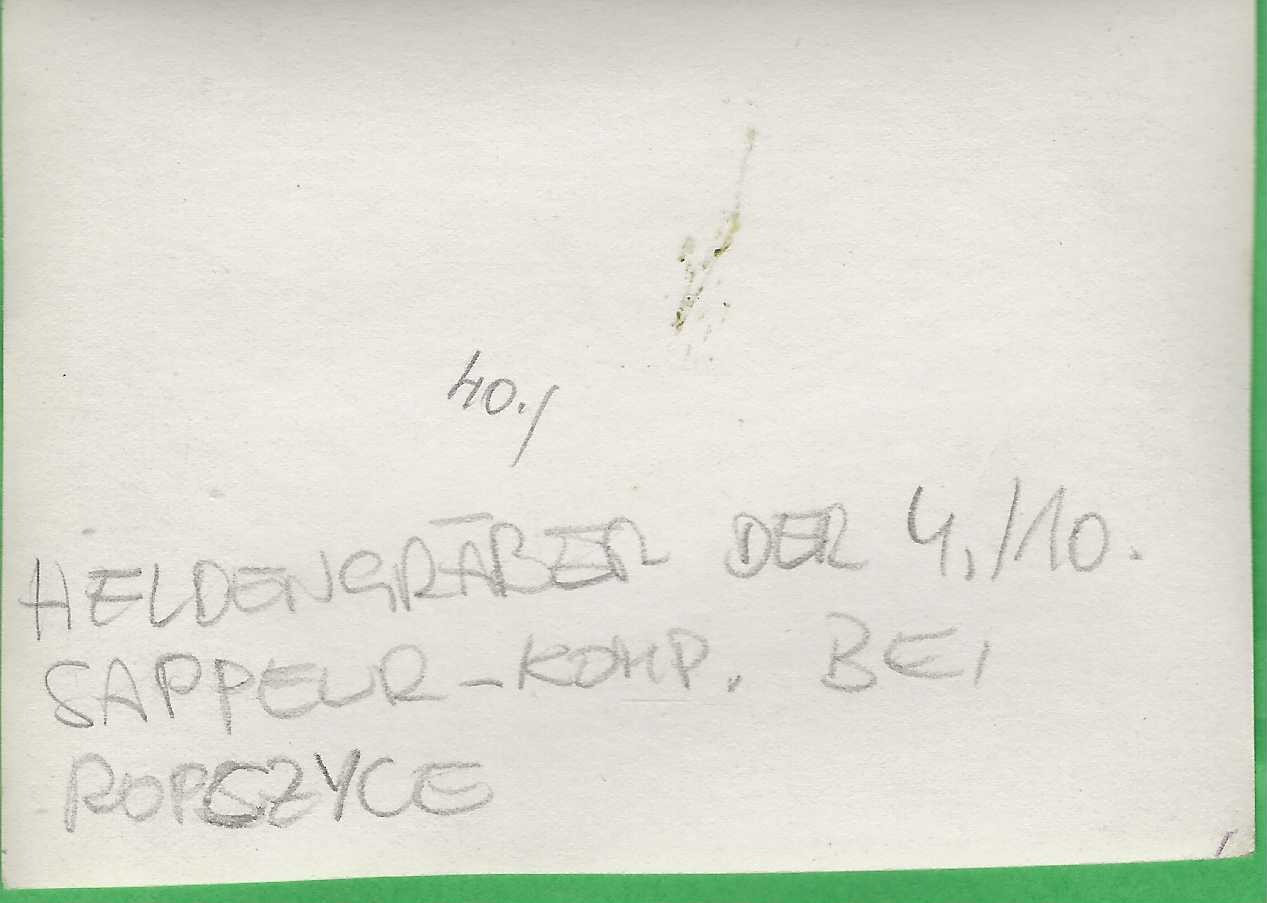 40./
HELDENGRÄBER DER 4./10.
SAPPEUR-KOMP. BEI
ROPCZYCE